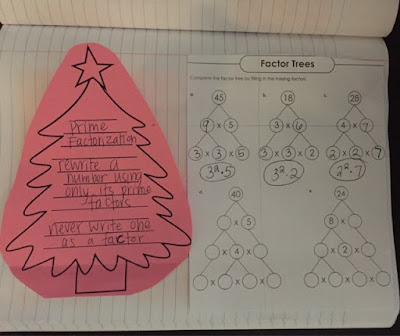 Prime
Factorization
rewrite a
number using
only its prime
factors
never write one
as a factor
Factor Trees
Complete the factor tree by filling in the missing factors.
a. b. c.
45 18 28
9 x 5 3 x 6 4 x 7
3 x 3 x 5 3 x 3 x 2 2 x 2 x 7
3²·5 3²·2 2²·7
d. e.
40 24
x 5 8 x
x 4 x x 2 x
x x x x x x